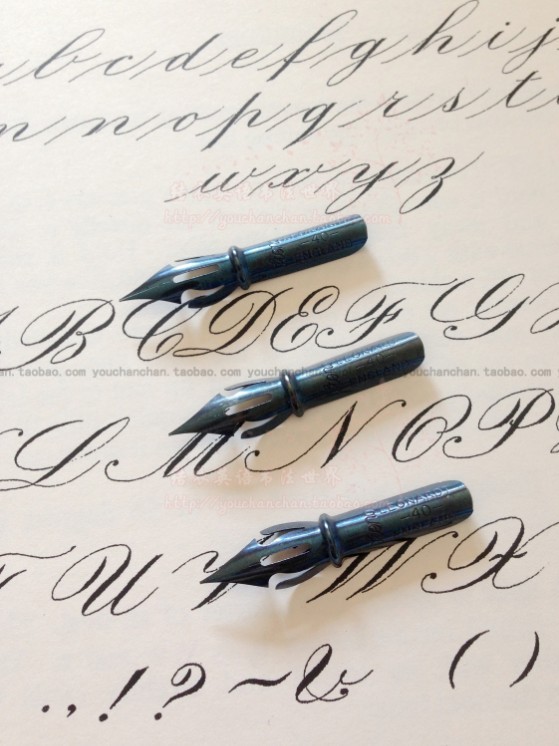 a b c d e f g h i j
m n o p q r s t
w x y z
http://youchanchan.taobao.com
ENGLAND
A B C D E F G
youchanchan.taobao.com youchanchan.taobao.com youchanchan.taobao.com
L M N O P
http://youchanchan.taobao.com
LEONARDT
40
T U V W X
. , ! ? ~ & ( )